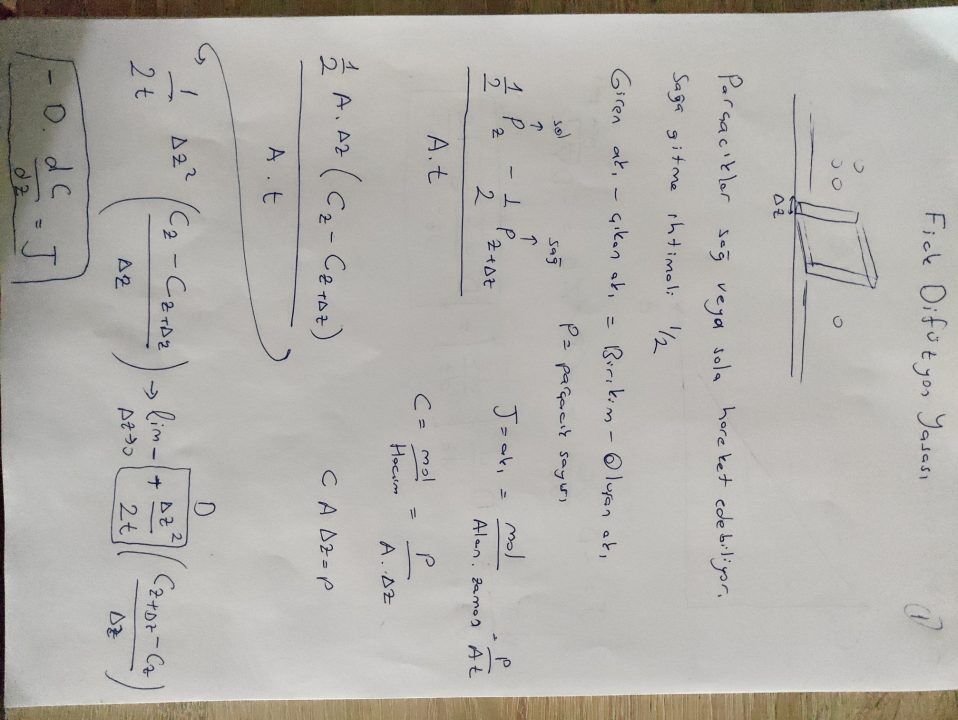 Fick Difüzyon Yasası
(1)
Δz
Parçacıklar sağ veya sola hareket edebiliyor.
Sağa gitme ihtimali 1/2
Giren akı - çıkan akı = Birikim - Oluşan akı
P = parçacık sayısı
sol sağ
(1/2 P_z - 1/2 P_z+Δz) / A.t
J = akı = mol / Alan.zaman = P / At
C = mol / Hacim = P / A.Δz
1/2 A.Δz (C_z - C_z+Δz) / A.t
C A Δz = P
1/2t Δz² ((C_z - C_z+Δz) / Δz) → lim Δz→0 - + Δz²/2t ((C_z+Δz - C_z) / Δz)
D
- D. dC/dz = J